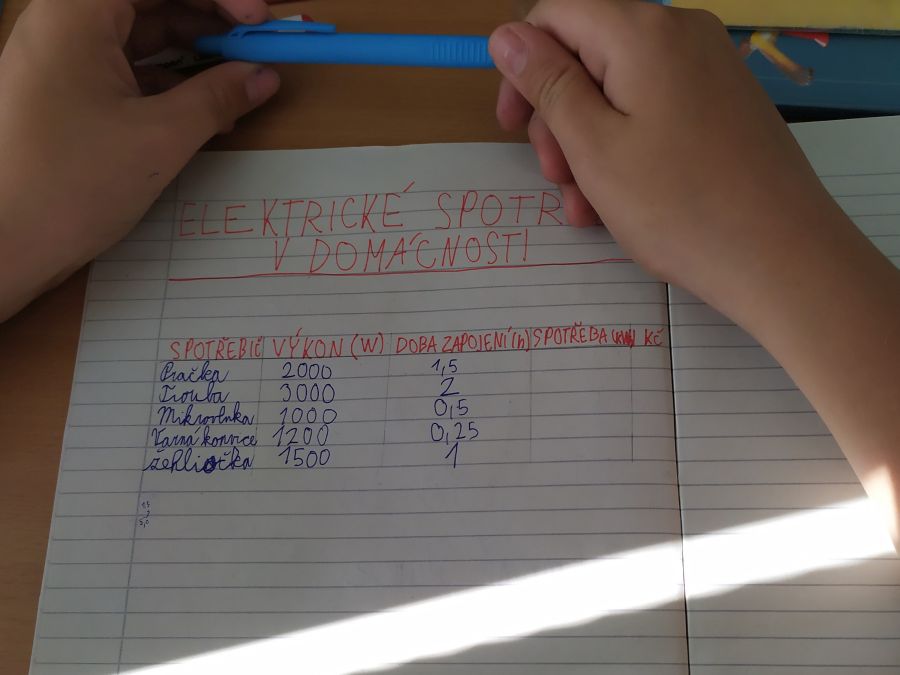 ELEKTRICKÉ SPOTŘ
V DOMÁCNOSTI
SPOTŘEBIČ VÝKON (W) DOBA ZAPOJENÍ (h) SPOTŘEBA (kWh) KČ
Pračka 2000 1,5
Trouba 3000 2
Mikrovlnka 1000 0,5
Varná konvice 1200 0,25
žehlička 1500 1